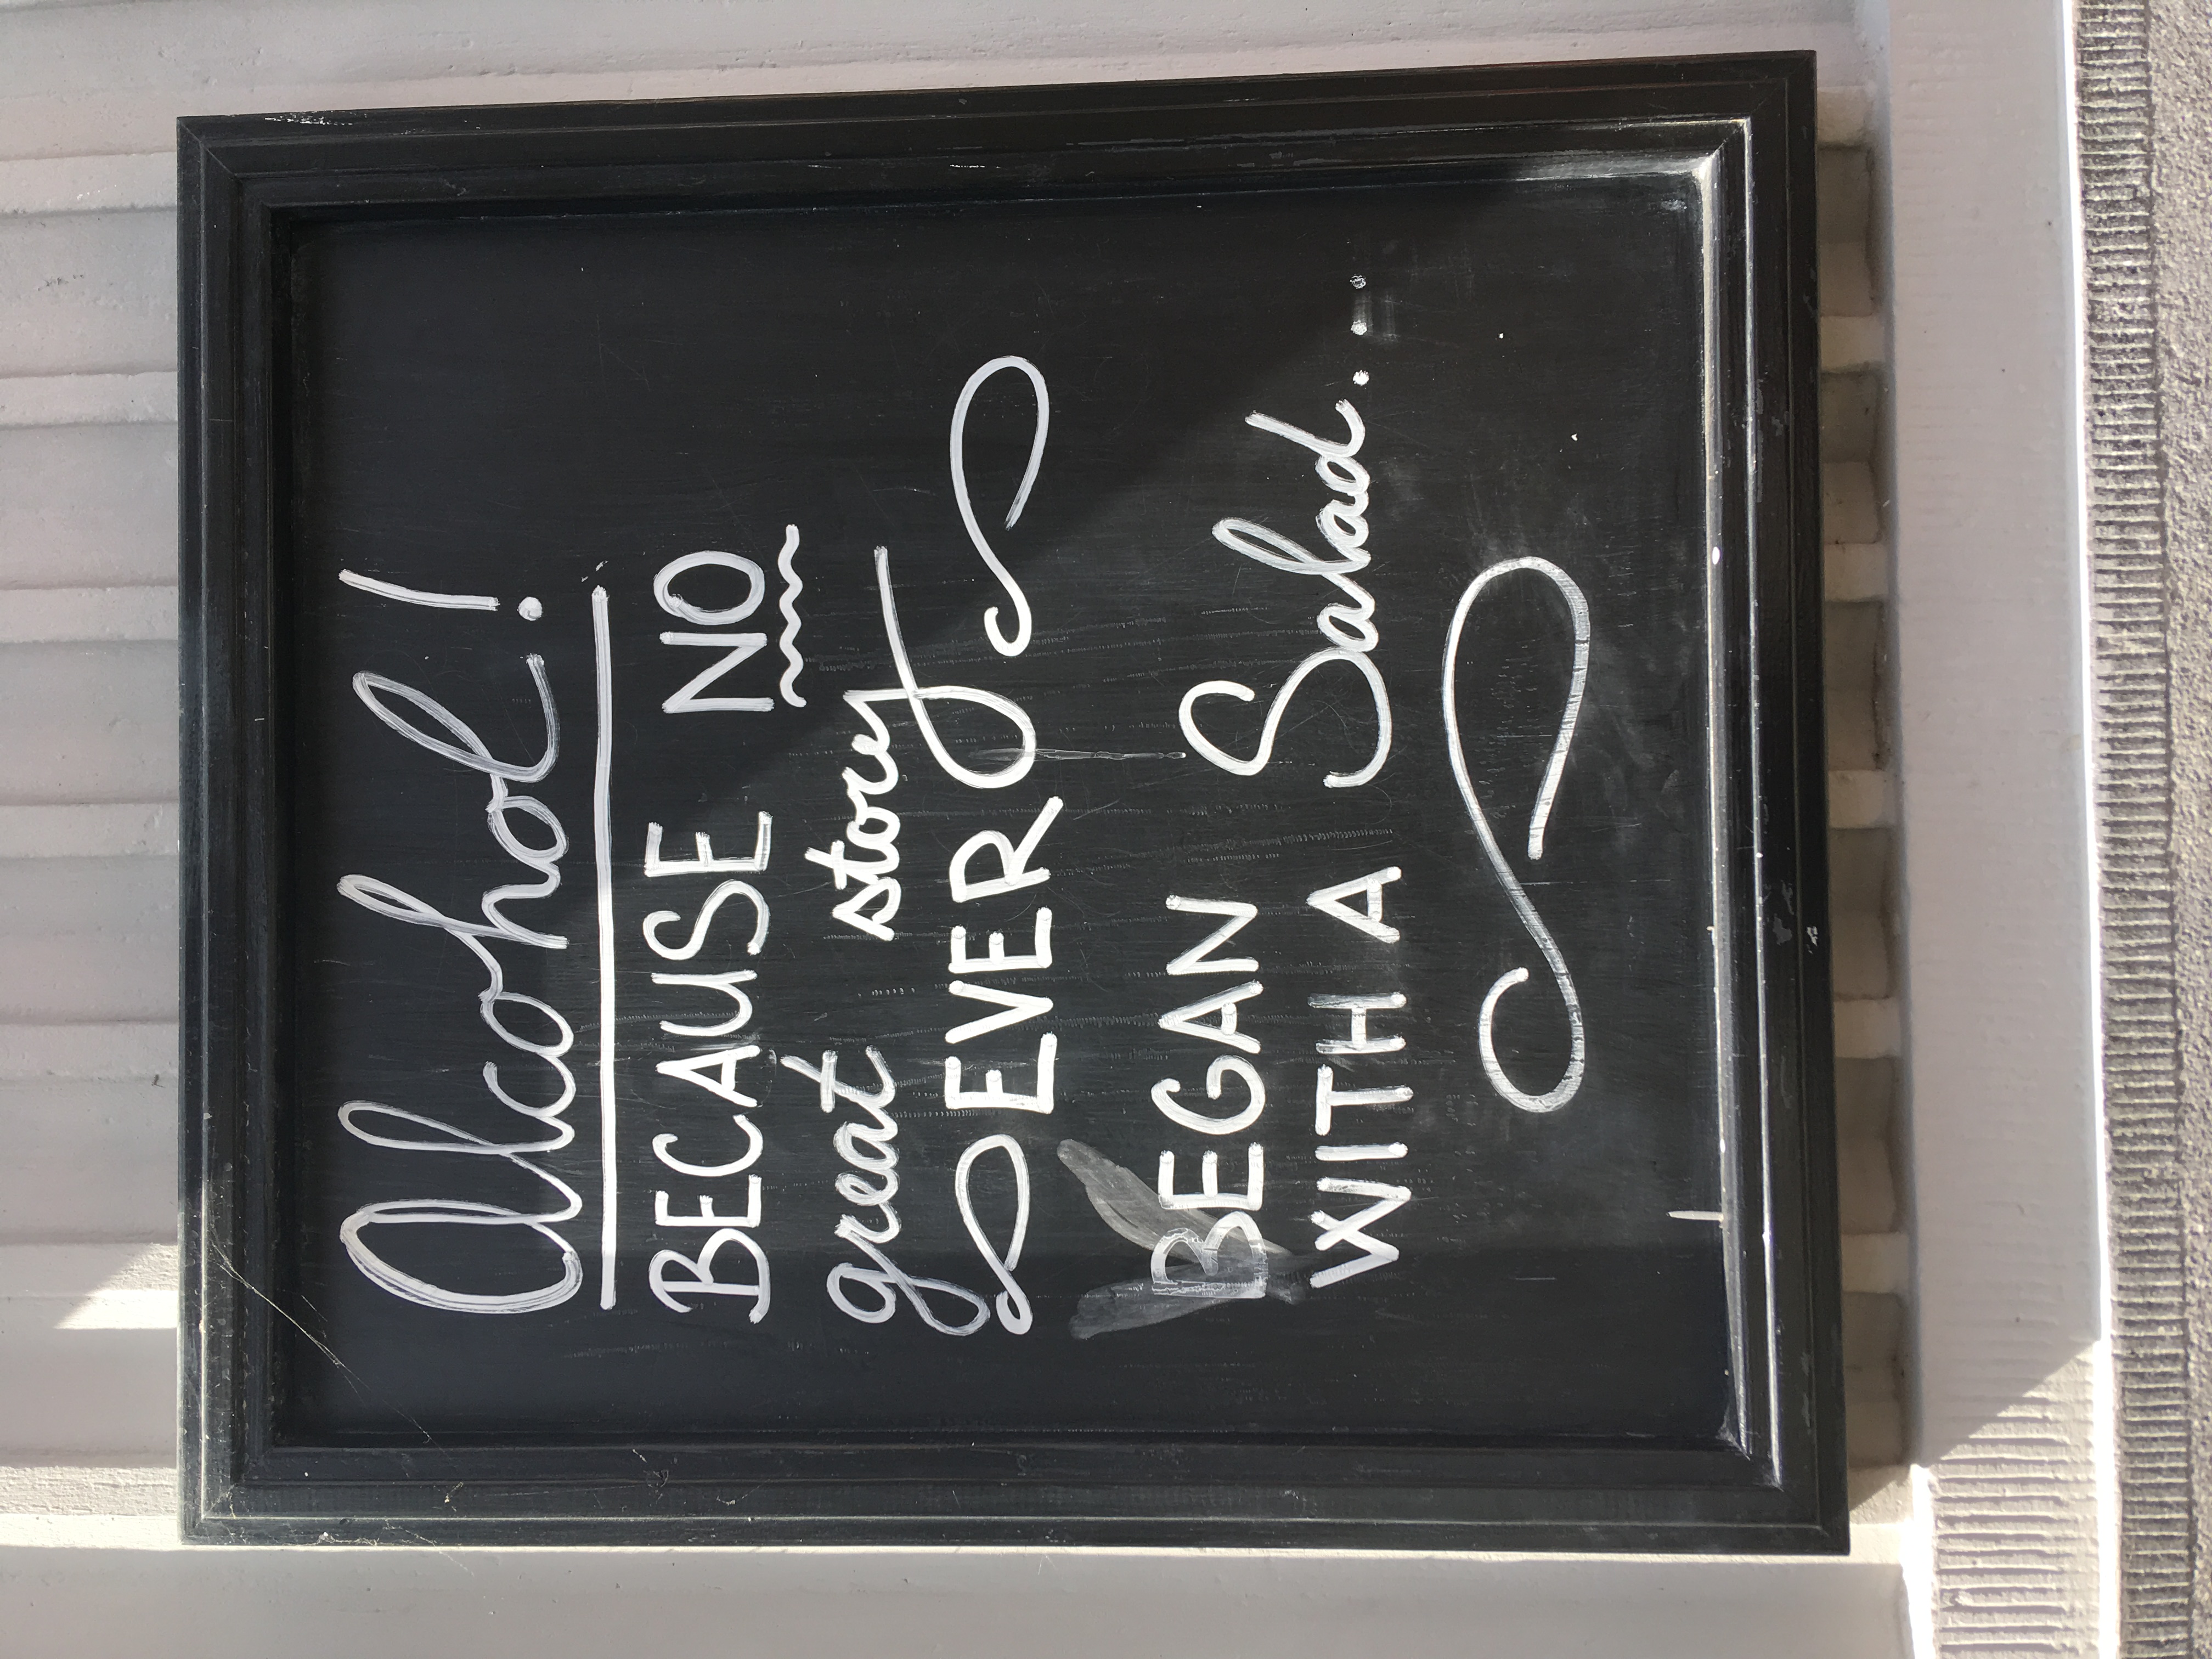 Alcohol!
BECAUSE NO
great story
EVER
BEGAN
WITH A Salad...